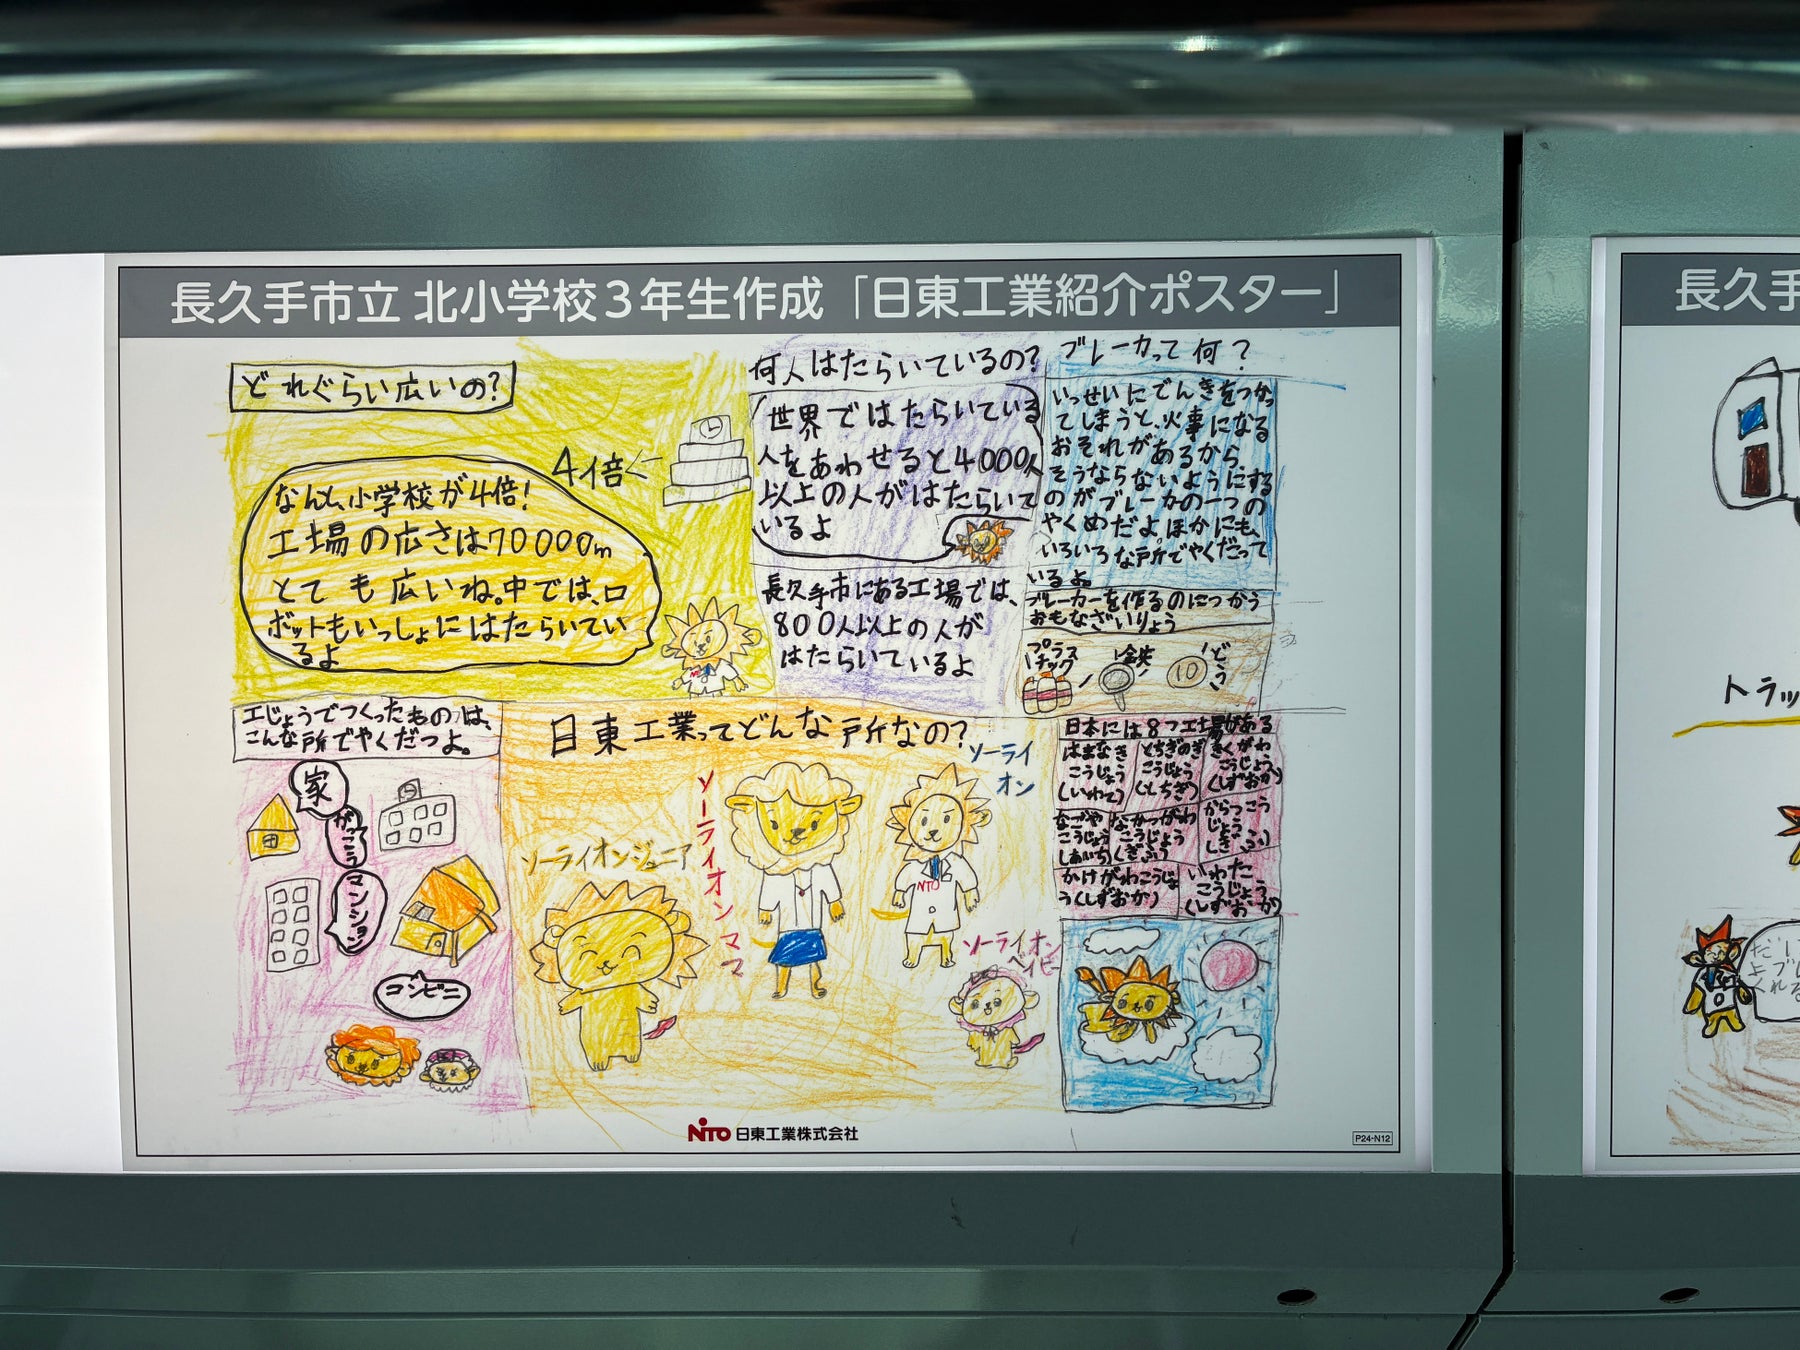 長久手市立 北小学校3年生作成「日東工業紹介ポスター」
どれぐらい広いの?
4倍
なんと、小学校が4倍!
工場の広さは70000m
とても広いね。中では、ロ
ボットもいっしょにはたらいてい
るよ
何人はたらいているの?
世界ではたらいている
人をあわせると4000人
以上の人がはたらいて
いるよ
長久手市にある工場では、
800人以上の人が
はたらいているよ
ブレーカって何?
いっせいにでんきをつかっ
てしまうと、火事になる
おそれがあるから
そうならないようにする
のがブレーカの一つの
やくめだよ。ほかにも、
いろいろな所でやくだって
いるよ。
ブレーカーを作るのにつかう
おもなざいりょう
プラス
チック
鉄
10
どう
工じょうでつくったものは、
こんな所でやくだつよ。
家
がっこう
マンション
コンビニ
日東工業ってどんな所なの?
ソーライオンジュニア
ソーライオンママ
ソーライ
オン
NTO
ソーライオン
ベイビー
日本には8つ工場がある
はまなき
こうじょう
(いわて)
とちぎのぎ
こうじょう
(とちぎ)
きくがわ
こうじょう
(しずおか)
なづや
こうじょう
(あいち)
なかつがわ
こうじょう
(ぎふ)
からつこう
じょう
かけがわこうじょ
う(しずおか)
いわた
こうじょう
(しずおか)
NITO 日東工業株式会社
P24-N12
長久手
トラッ